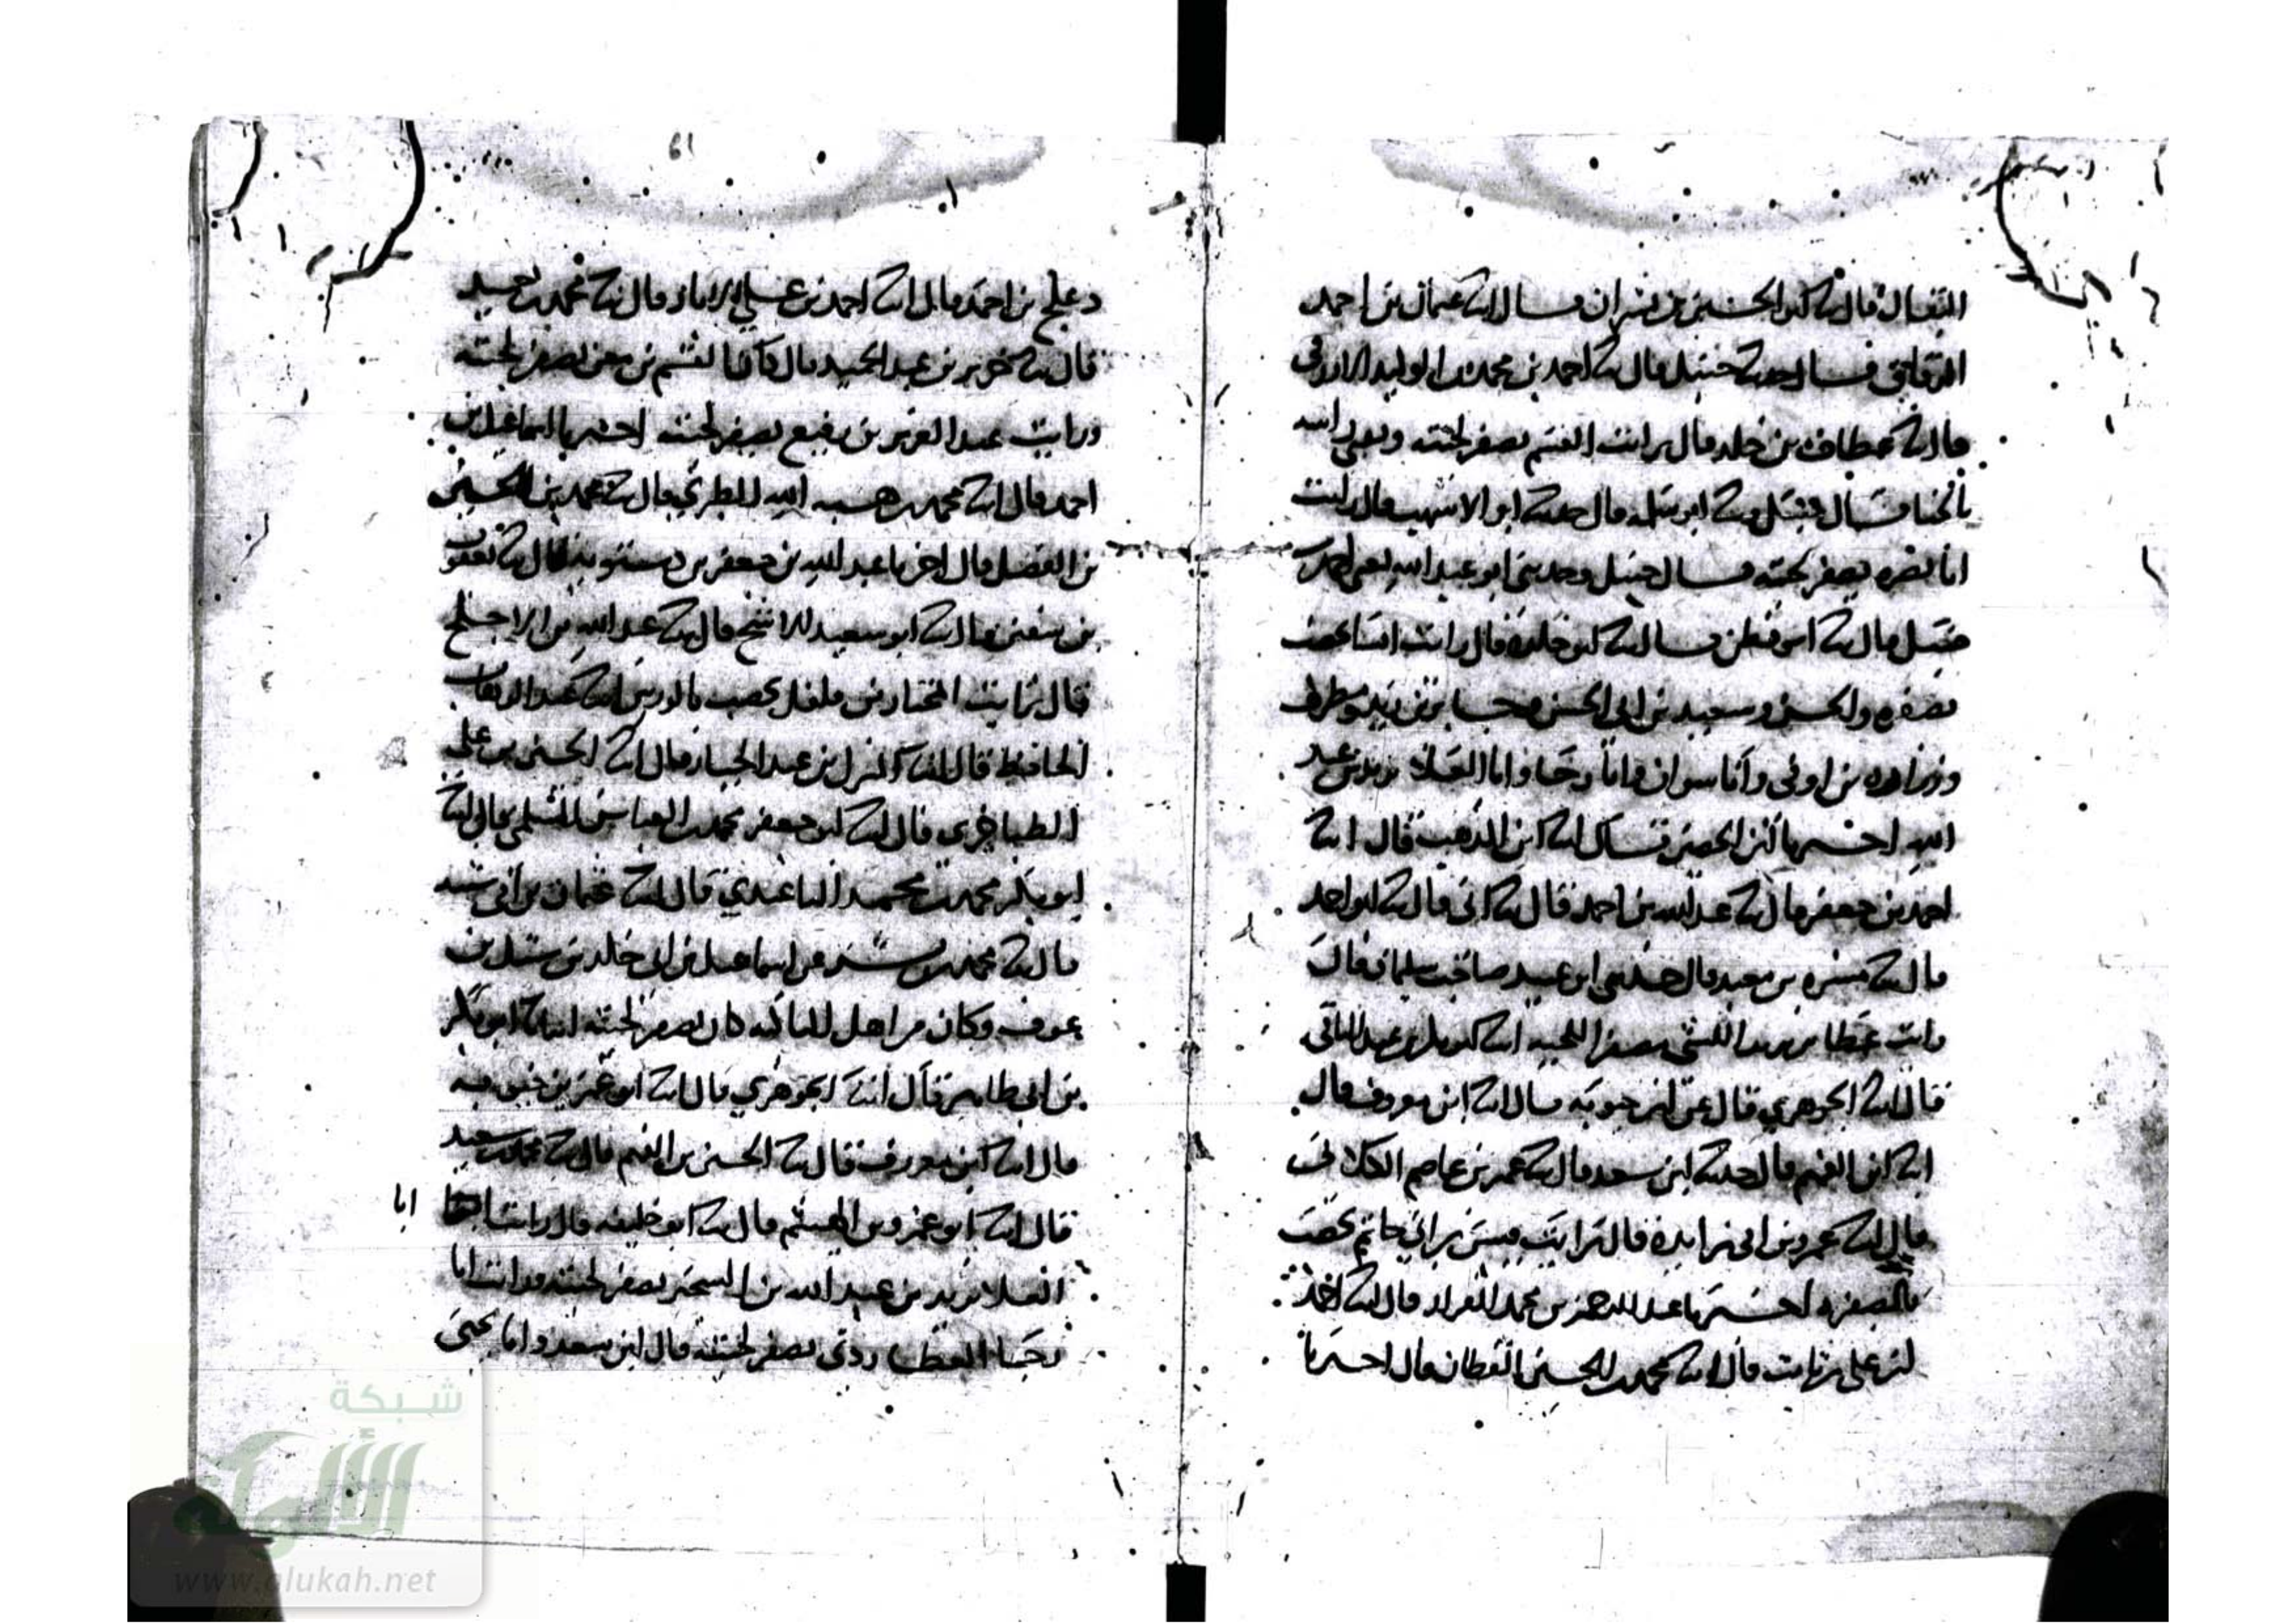 البقال قال ابنا ابو الحسين بن بشران قال ابنا عثمان بن احمد
الدقاق قال حدثنا حنبل قال ثنا احمد بن محمد بن الوليد الازرقي
قال ثنا عطاف بن خالد قال رايت القسم يصفر لحيته وراسه
بالحنا قال حنبل وثنا ابو سلمه قال حدثنا ابو الاشهب قال رايت
ابا نضره يصفر لحيته قال حنبل وحدثني ابو عبد الله يعني احمد بن
حنبل قال ثنا ابو قطن قال ثنا ابو خلده قال رايت انسا يخضب
بصفره والحسن وسعيد بن ابي الحسن وجابر بن زيد ومطرف
وزراره بن اوفى وابا سوار وابا رجا وابا العلا يزيد بن عبد
الله اخبرنا ابن الحصين قال ابنا ابن المذهب قال ابنا
احمد بن جعفر قال ثنا عبد الله بن احمد قال ثنا ابي قال ثنا ابو احمد
قال ثنا مسره بن معبد قال حدثني ابو عبيد صاحب سليمان قال
رايت عطا بن يزيد الليثي مصفرا اللحيه ابنا ابو بكر بن عبد الباقي
قال ابنا الجوهري قال ابن حيويه قال ابنا ابن معروف قال
ابنا ابن الفهم قال حدثنا ابن سعد قال ثنا عمر بن عاصم الكلابي
قال ثنا عمر بن ابي زايدة قال رايت قيس بن ابي حاتم يخضب
بالصفره اخبرنا عبد الرحمن بن محمد القزاز قال ابنا احمد
بن علي بن ثابت قال ابنا محمد بن الحسين القطان قال اخبرنا
61
دعلج بن احمد قال ابنا احمد بن علي الابار قال ثنا محمد بن حميد
قال ثنا جرير بن عبد الحميد قال كان القسم بن معن يصفر لحيته
ورايت عبد العزيز بن رفيع يصفر لحيته اخبرنا اسماعيل بن
احمد قال ابنا محمد بن هبه الله الطبري قال ثنا محمد بن الحسين
بن الفضل قال اخبرنا عبد الله بن جعفر بن درستويه قال ثنا يعقوب
بن سفين قال ثنا ابو سعيد الاشج قال ثنا عبد الله بن الاجلح
قال رايت المختار بن فلفل يخضب بالورس ابنا عبد الوهاب
الحافظ قال ابنا المبارك بن عبد الجبار قال ابنا الحسين بن علي
الطناجري قال ابنا ابو جعفر محمد بن العباس السلمي قال ابنا
ابو بكر محمد بن محمد الباغندي قال ثنا عثمان بن ابي شيبه
قال ثنا محمد بن بشر عن اسماعيل بن ابي خالد بن شبل بن
عوف وكان من اهل القادسيه كان يصفر لحيته انبانا ابو بكر
بن ابي طاهر قال انبا الجوهري قال ابنا ابو عمر بن حيويه
قال ابنا ابن معروف قال ثنا الحسين بن الفهم قال ثنا محمد بن سعد
قال ابنا ابو عمرو بن الهيثم قال ثنا ابو خليفه قال رايت ابا
ابا
العلا يزيد بن عبد الله بن الشخير يصفر لحيته ورايت ابا
رجا العطاردي يصفر لحيته قال ابن سعد وابنا يحيى
شبكة
الألوكة
www.alukah.net